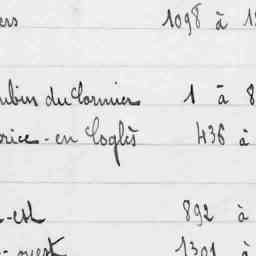 ers 1098 à 1
ubin du Cormier 1 à 8
rice-en Coglès 436 à
-est 892 à
-ouest 1301 à